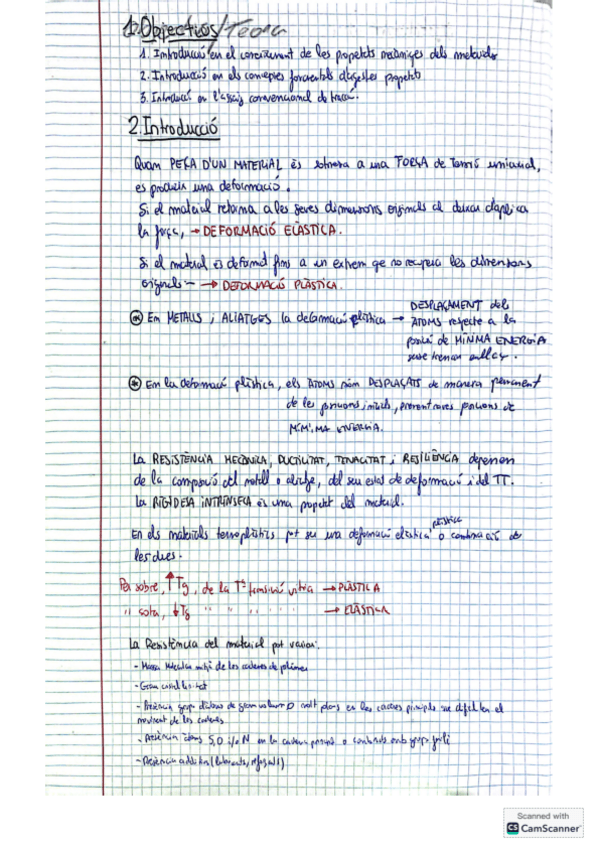 1. Objectius/Teoria
1. Introducció en el coneixement de les propietats mecàniques dels materials
2. Introducció en els conceptes fonamentals d'aquestes propietats
3. Introducció en l'assaig convencional de tracció.
2. Introducció
Quan PEÇA D'UN MATERIAL és sotmesa a una FORÇA de Tensió uniaxial,
es produeix una deformació.
Si el material retorna a les seves dimensions originals al deixar d'aplicar
la força, → DEFORMACIÓ ELÀSTICA.
Si el material és deformat fins a un extrem que no recupera les dimensions
originals → DEFORMACIÓ PLÀSTICA.
* En METALLS i ALIATGES la deformació plàstica → DESPLAÇAMENT dels
ATOMS respecte a la
posició de MÍNIMA ENERGIA
sense trencar enllaç.
* En la deformació plàstica, els ATOMS són DESPLAÇATS de manera permanent
de les posicions inicials, prenent noves posicions de
MÍNIMA ENERGIA.
La RESISTÈNCIA MECÀNICA, DUCTILITAT, TENACITAT i RESILIÈNCIA depenen
de la composició del metall o aliatge, del seu estat de deformació i del TT.
La RIGIDESA INTRÍNSECA és una propietat del material.
En els materials termoplàstics pot ser una deformació elàstica, plàstica o combinació de
les dues.
Per sobre, ↑Tg, de la Tª transició vítria → PLÀSTICA
" sota, ↓Tg " " " " " → ELÀSTICA
La Resistència del material pot variar:
- Massa Molecular mitja de les cadenes de polímer
- Grau cristal·linitat
- Presència grups de gran volum en les cadenes principals que dificulten el
moviment de les cadenes
- Presència àtoms S, O i/o N en la cadena principal o
- Presència additius (lubricants,
Scanned with
CS CamScanner